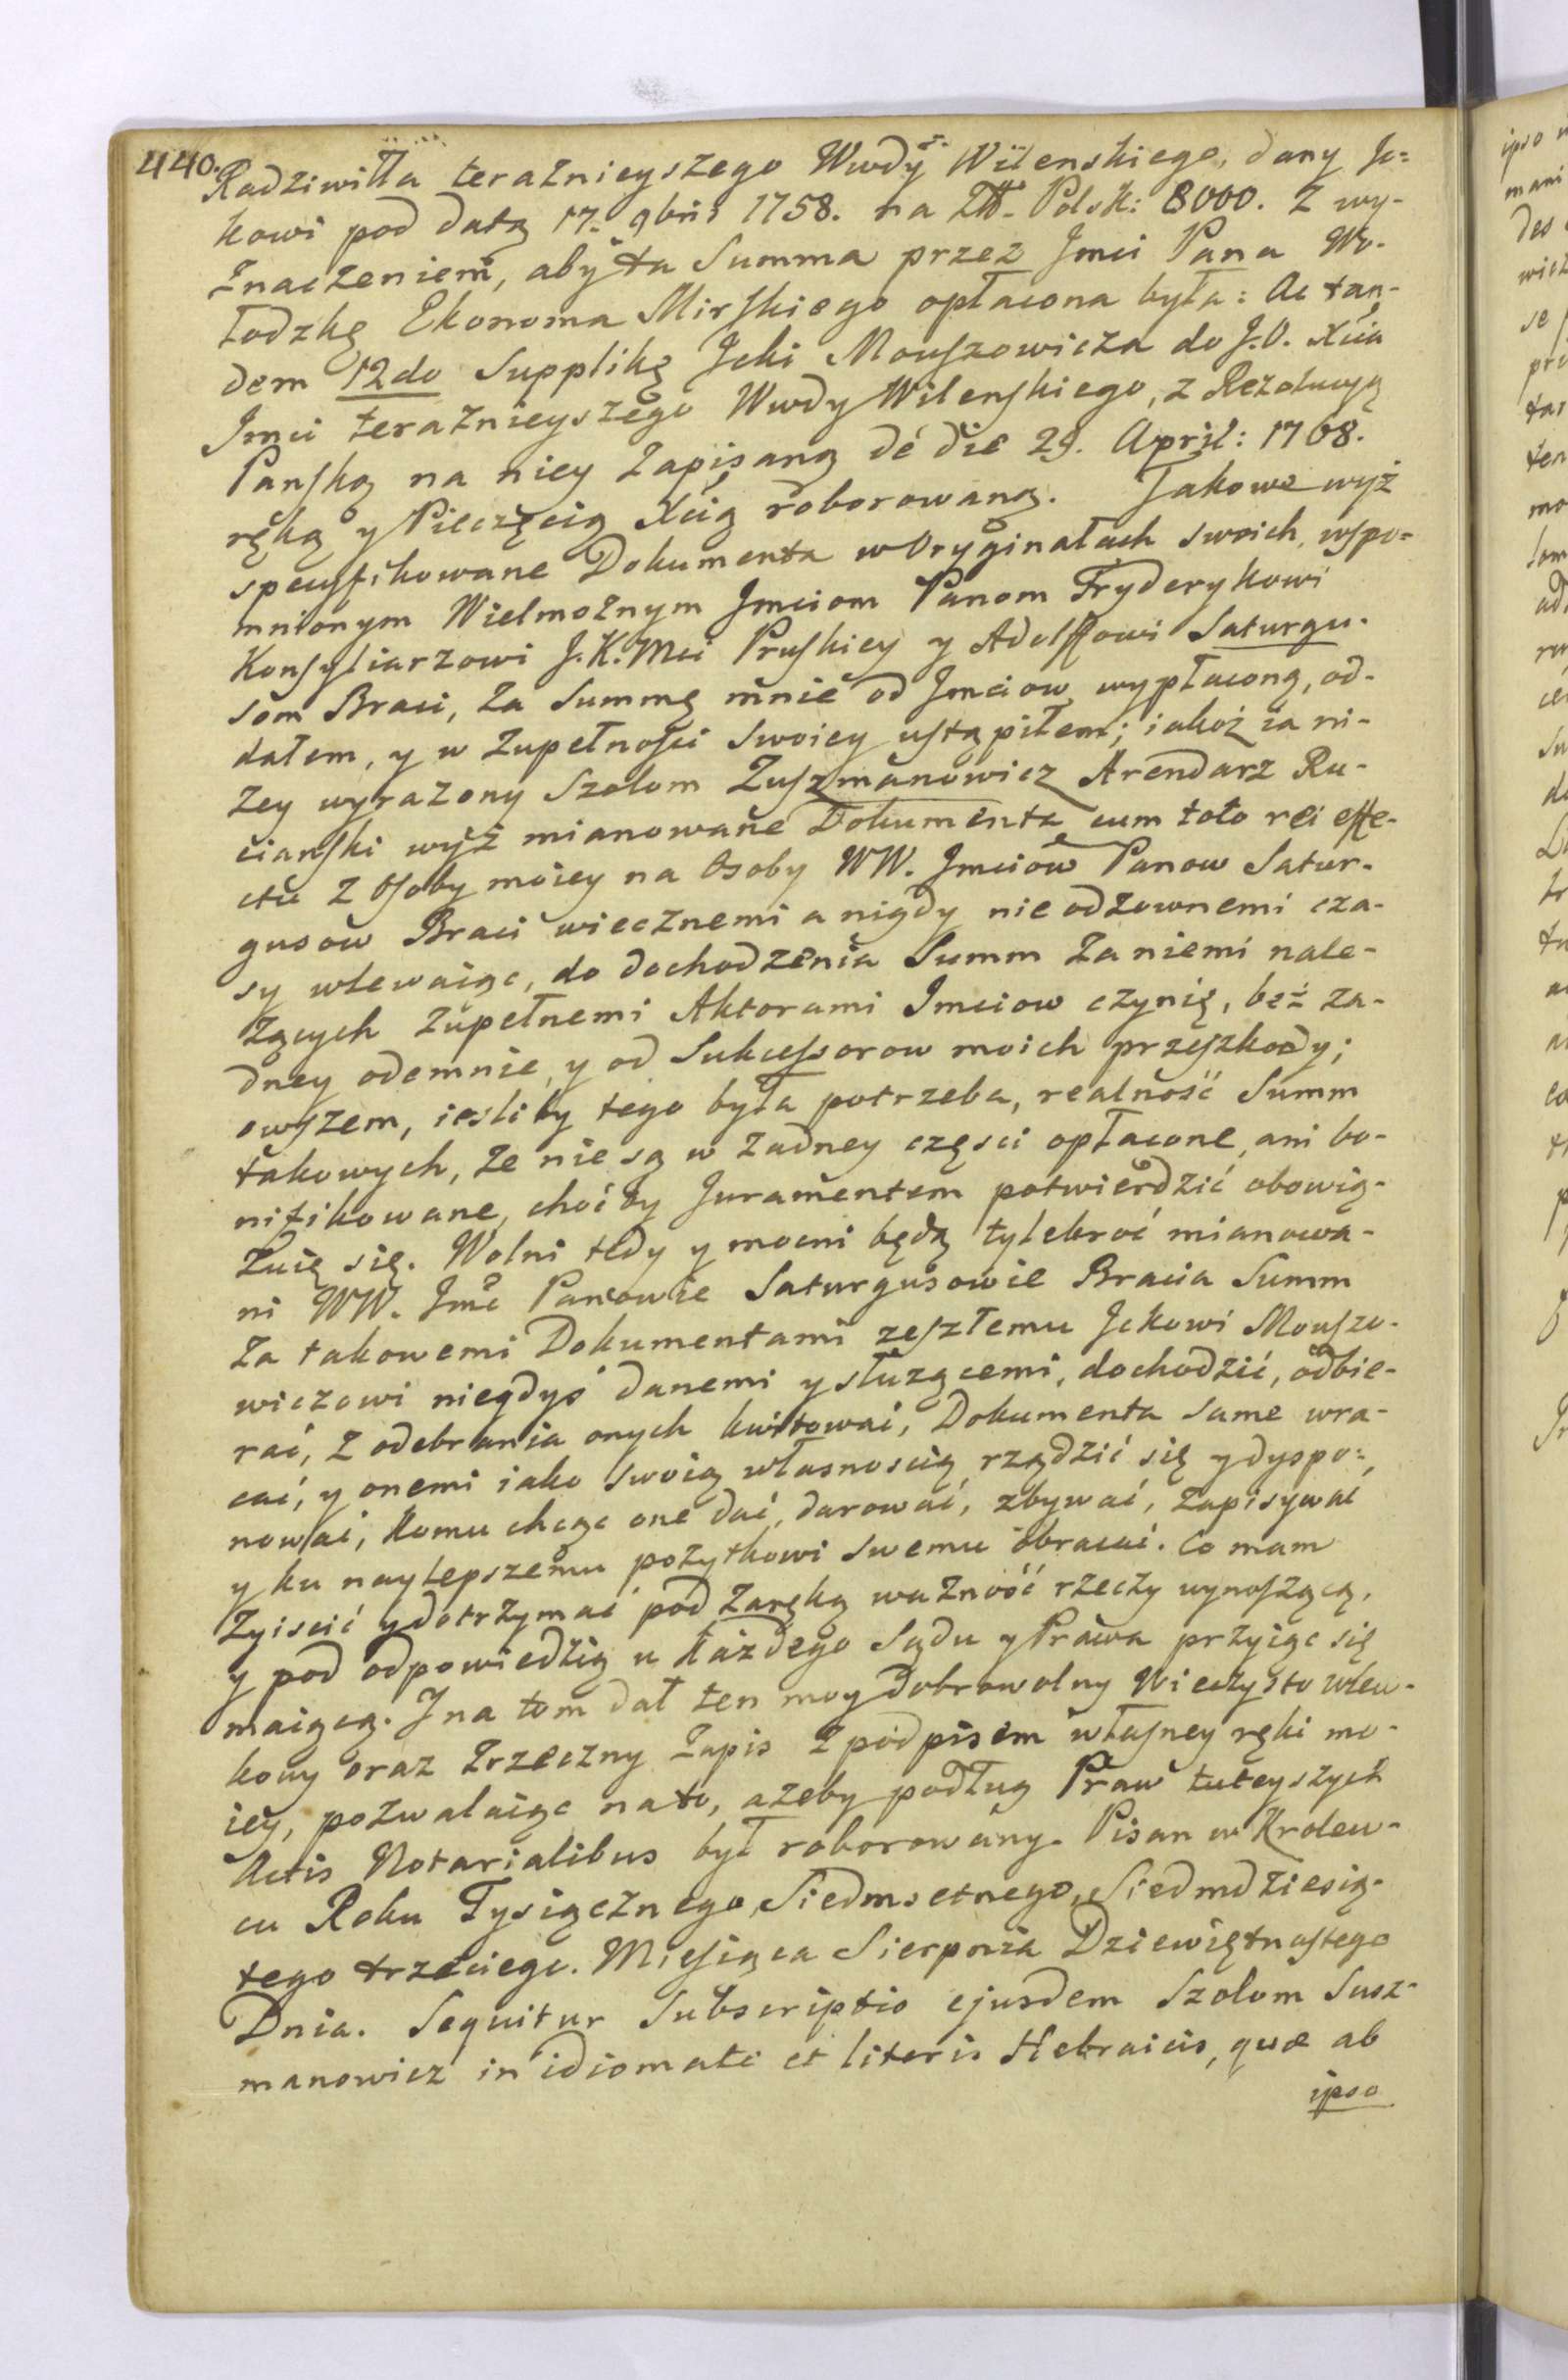 440.
Radziwiłła teraznieyszego Wwdy Wilenskiego, dany Jc=
kowi pod datą 17. 9bris 1758. na Zł. Polsk: 8000. z wy-
znaczeniem, aby ta Summa przez Jmci Pana Wo-
łodzkę Ekonoma Mirskiego opłacona była: Ac tan-
dem 12do Supplikę Jcki Mouszowicza do J.O. Xcia
Jmci teraznieyszego Wwdy Wilenskiego, z Rezolucyą
Panską na niey zapisaną de die 29. April: 1768.
ręką y Pieczęcią Xcią roborowaną. Jakowe wyż
specyfikowane Dokumenta w Oryginałach swoich, wspo=
mnionym Wielmożnym Jmciom Panom Fryderykowi
Konsyliarzowi J.K.Mci Pruskiey y Adolffowi Saturgu-
som Braci, za Summę mnie od Jmciow wypłaconą, od-
dałem, y w zupełności swoiey ustąpiłem; iakoż ia ni-
zey wyrazony Szolom Zuszmanowicz Arendarz Ru-
cianski wyż mianowane Dokumenta cum toto rei effe-
ctu z Osoby moiey na Osoby WW. Jmciow Panow Satur-
gusow Braci wiecznemi a nigdy nie odzownemi cza-
sy wlewaiąc, do dochodzenia Summ za niemi nale-
zących zupełnemi Aktorami Jmciow czynię, bez za-
dney odemnie, y od Sukcessorow moich przeszkody;
owszem, iesliby tego była potrzeba, realność Summ
takowych, ze nie są w zadney części opłacone, ani bo-
nifikowane, choćby Juramentem potwierdzić obowią-
zuię się. Wolni tedy y mocni będą tylekroć mianowa-
ni WW. Jmć Panowie Saturgusowie Bracia Summ
za takowemi Dokumentami zeszłemu Jckowi Mouszo-
wiczowi niegdyś danemi y słuzącemi, dochodzić, odbie-
rać, z odebrania onych kwitować, Dokumenta same wra-
cać, y onemi iako swoią własnoscią rządzić się y dyspo=
nować, komu chcąc one dać, darować, zbywać, zapisywać
y ku naylepszemu pożytkowi swemu obracać. Co mam
zyiscić y dotrzymać pod zaręką wazność rzeczy wynoszącą,
y pod odpowiedzią u kazdego Sądu y Prawa przyiąc się
maiącą. J na tom dał ten moy dobrowolny Wieczysto wlew-
kowy oraz zrzeczny zapis z podpisem własney ręki mo-
iey, pozwalaiąc na to, azeby podług Praw tuteyszych
Actis Notarialibus był roborowany. Pisan w Krolew-
cu Roku Tysiącznego, Siedmsetnego, Siedmdziesią-
tego trzeciego. Miesiąca Sierpnia Dziewiętnastego
Dnia. Sequitur Subscriptio ejusdem Szolom Susz-
manowicz in idiomate et literis Hebraicis, quæ ab
ipso